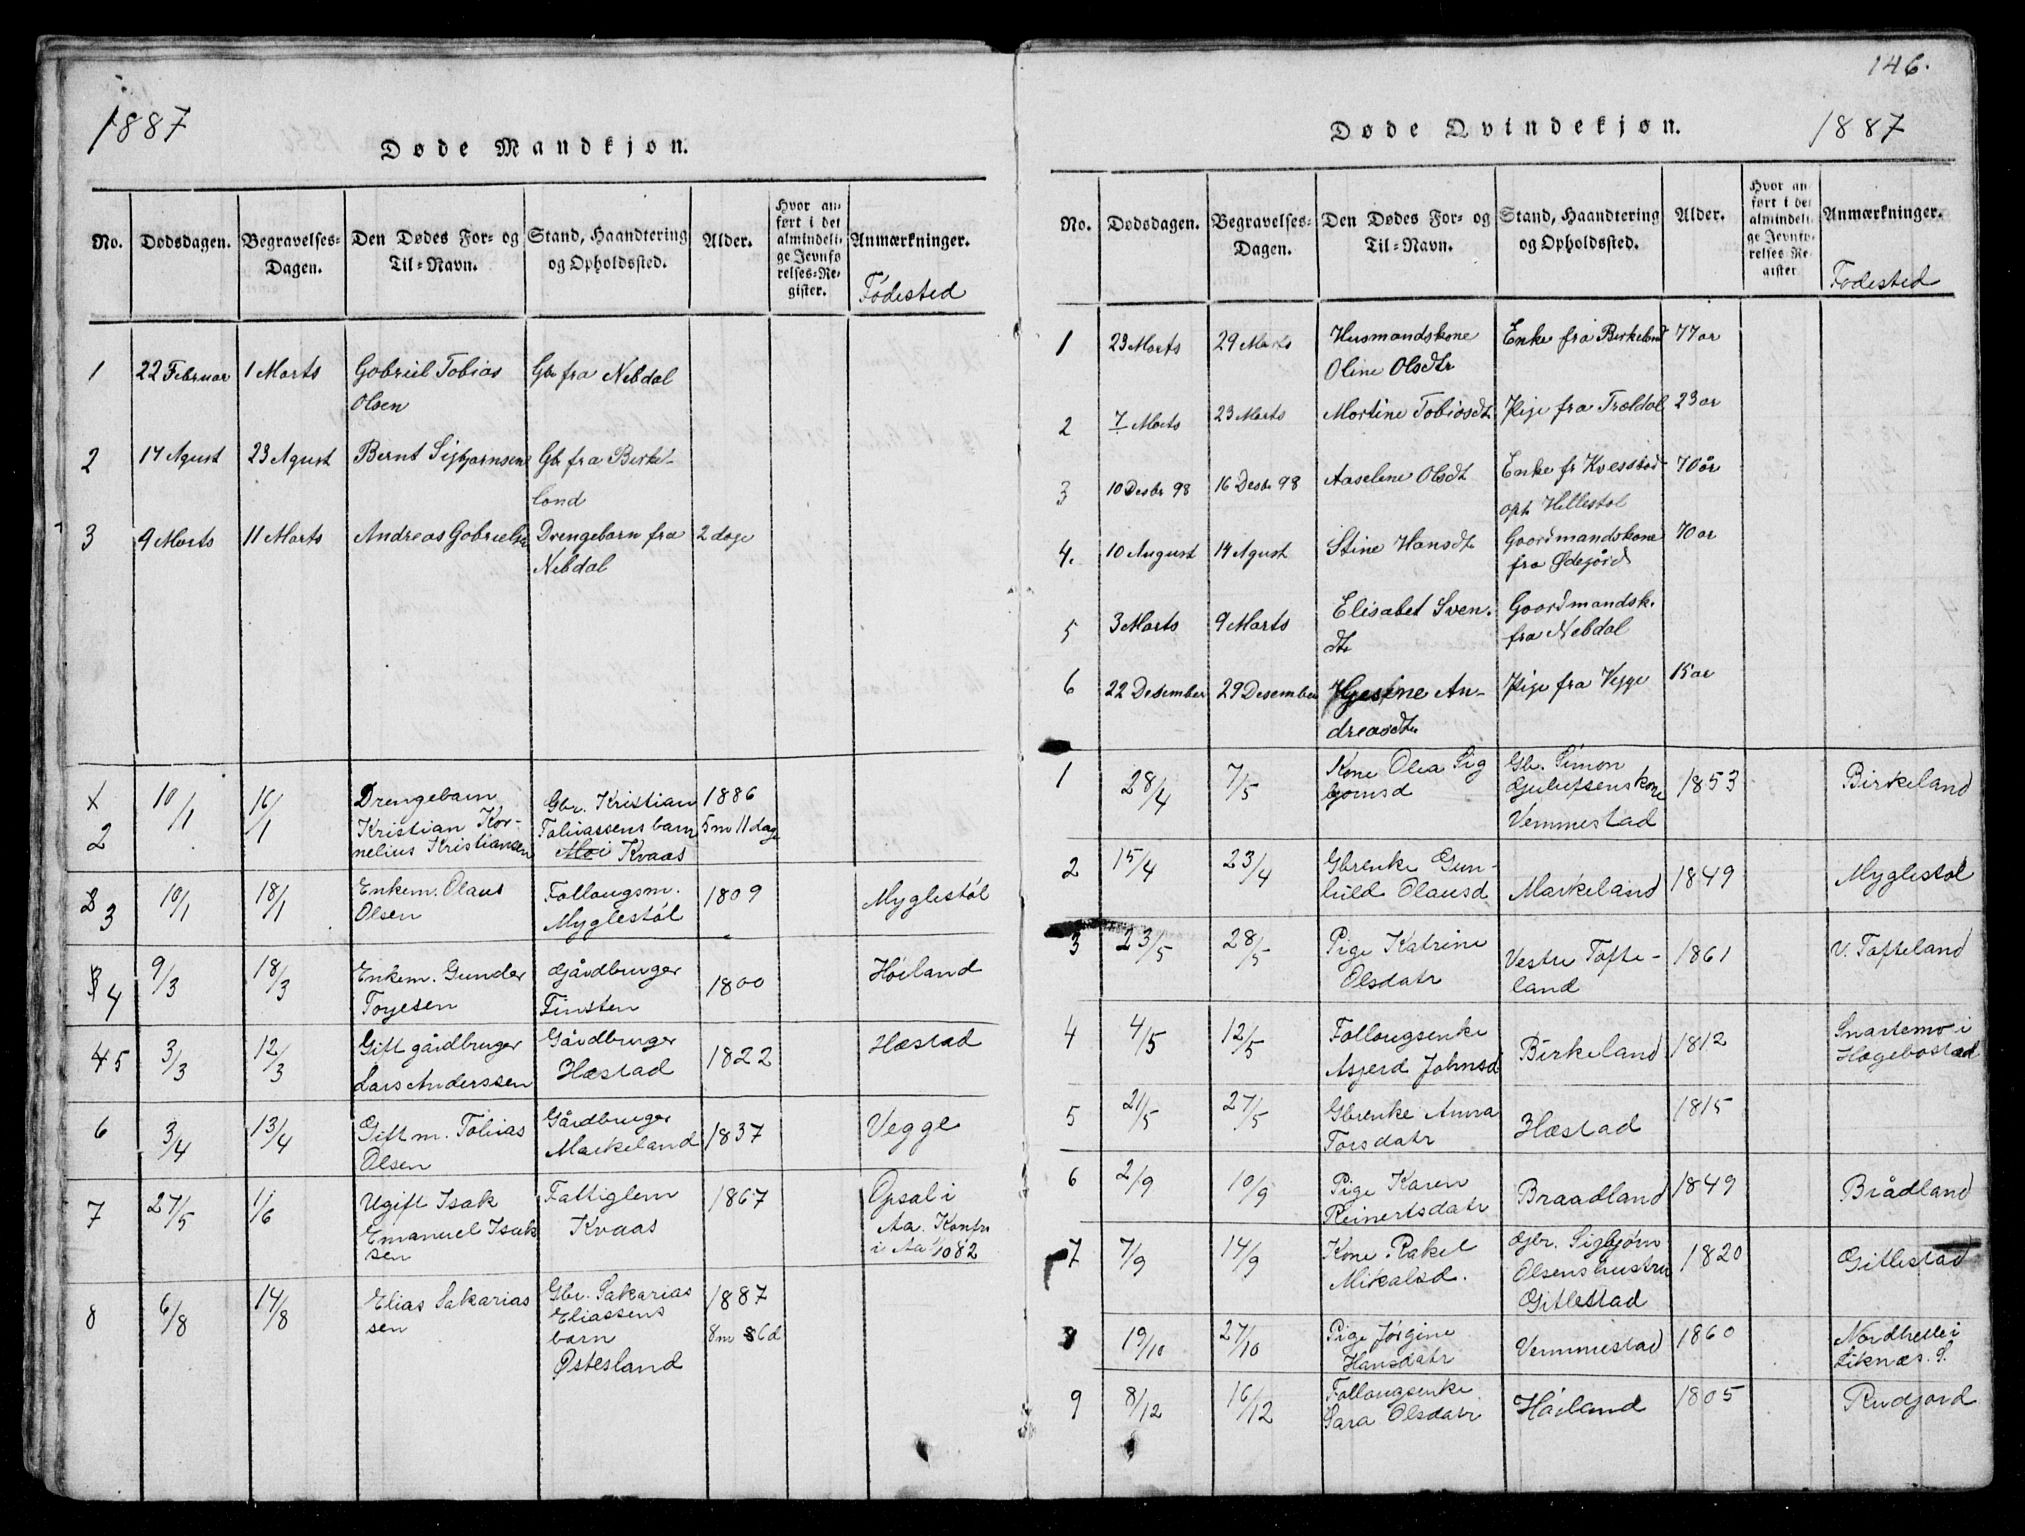 1887
Døde Mandkjøn.
No. Dødsdagen. Begravelses-Dagen. Den Dødes For- og Til-Navn. Stand, Haandtering og Opholdssted. Alder. Hvor anført i det almindelige Jevnførelses-Register. Anmærkninger. Fødested
1 22 Februar 1 Marts Gabriel Tobias Gbr fra Nebdal
Olsen
2 17 Agust 23 Agust Bernt Sigbjørnsen Gbr fra Birke-
land
3 9 Marts 11 Marts Andreas Gabrielsen Drengebarn fra 2 dage
Nebdal
2 10/1 16/1 Drengebarn Gbr. Kristian 1886
Kristian Kor- Tobiassens barn 5m 11 dage
nelius Kristiansen Moi Kvaas
3 10/1 18/1 Enkem. Olaus Follaugsm. 1809 Myglestøl
Olsen Myglestøl
4 9/3 18/3 Enkem. Gunder Gårdbruger 1800 Høiland
Toyesen Finsten
4 5 3/3 12/3 Gift gårdbruger Gårdbruger 1822 Hæstad
Lars Anderssen Hæstad
6 3/4 13/4 Gift m. Tobias Gårdbruger 1837 Vegge
Olsen Markeland
7 27/5 1/6 Ugift Isak Fattiglem 1867 Opsal i
Emanuel Isak Kvaas Aa. Kontr
sen i Aa 1/10 82
8 6/8 14/8 Elias Sakarias Gbr. Sakarias 1887
sen Eliassens 8m 6d
barn
Østesland
146.
Døde Qvindekjøn.
1887
No. Dødsdagen. Begravelses-Dagen. Den Dødes For- og Til-Navn. Stand, Haandtering og Opholdssted. Alder. Hvor anført i det almindelige Jevnførelses-Register Anmærkninger. Fødested
1 23 Marts 29 Marts Husmandskone Enke fra Birkeland 77 ar
Oline Olsdtr
2 7 Marts 23 Marts Martine Tobiasdt Pige fra Trældal 23 ar
3 10 Desbr 98 16 Desbr 98 Aaselene Olsdt Enke fr Kvesstad 70 år
opt. Hellestøl
4. 10 August 14 Agust Stine Hansdt Goordmandskone 70 ar
fra Ødegård
5 3 Marts 9 Marts Elisabet Sven. Goordmandsk.
dtr fra Nebdal
6 22 Desember 29 Desember An- Pige fra Vegge 15 ar
dreasdtr
1 28/4 7/5 Kone Olea Sig Gbr. Simon 1853 Birkeland
bjørnsd Gjulufsens kone
Vemmestad
2 15/4 23/4 Gbrenke Gun- Markeland 1849 Myglestøl
hild Olausd
3 23/5 28/5 Pige Katrine Vestre Tofte- 1861 V. Tofteland
Olsdatr land
4 4/5 12/5 Follougsenke Birkeland 1812 Snartemo i
Asjerd Johnsd Hægebostad
5 21/5 27/5 Gbrenke Anna Hæstad 1815
Torsdatr
6 2/9 10/9 Pige Karen Braadland 1849 Brådland
Reinertsdatr
7 7/9 14/9 Kone Rakel Gbr. Sigbjørn 1820 Gitlestad
Mikalsd. Olsens hustru
Gitlestad
8 19/10 27/10 Pige Jørgine Vemmestad 1860 Nordhelle i
Hansdatr Liknæs. S.
9 8/12 16/12 Follougsenke Høiland 1805 Rudjord
Sara Olsdatr